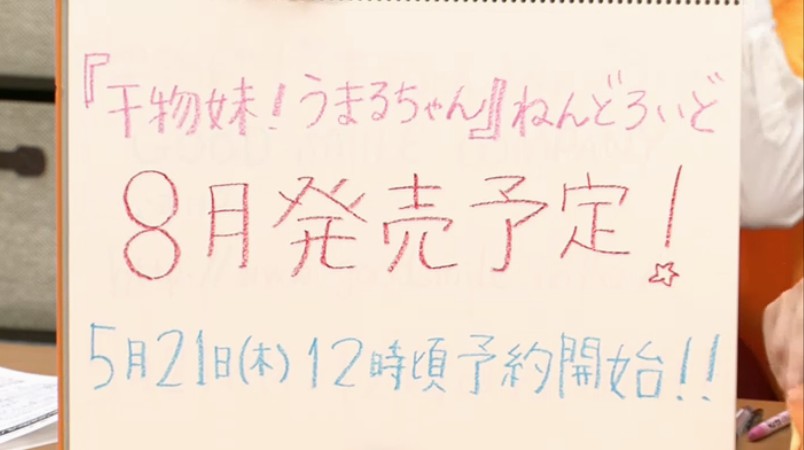 『干物妹!うまるちゃん』ねんどろいど
8月発売予定!
5月21日(木)12時頃予約開始!!